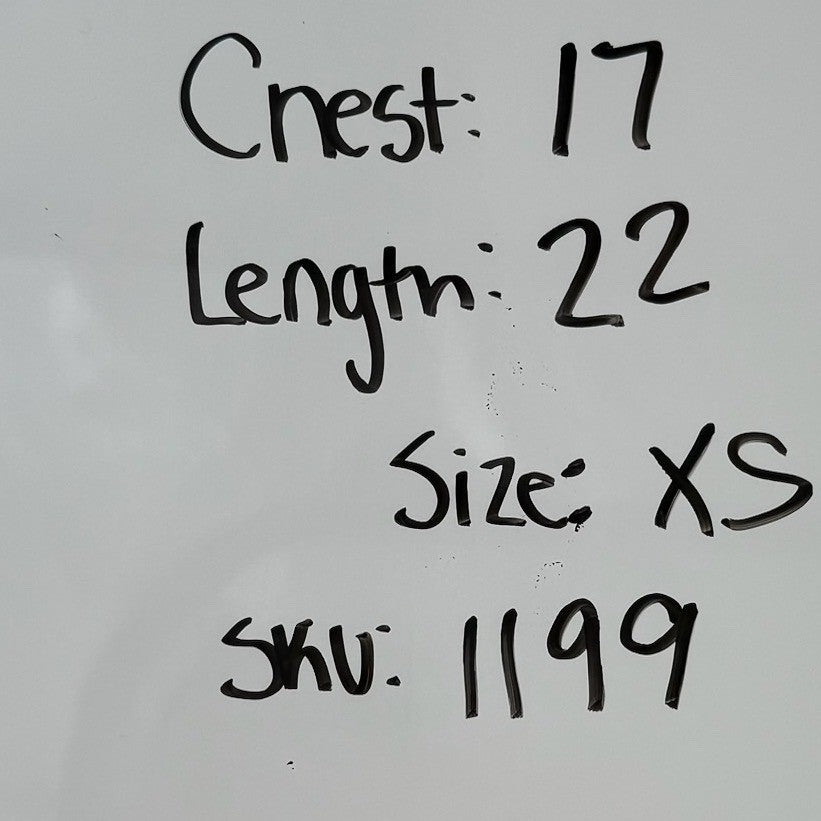 Chest: 17
Length: 22
Size: XS
SKU: 1199